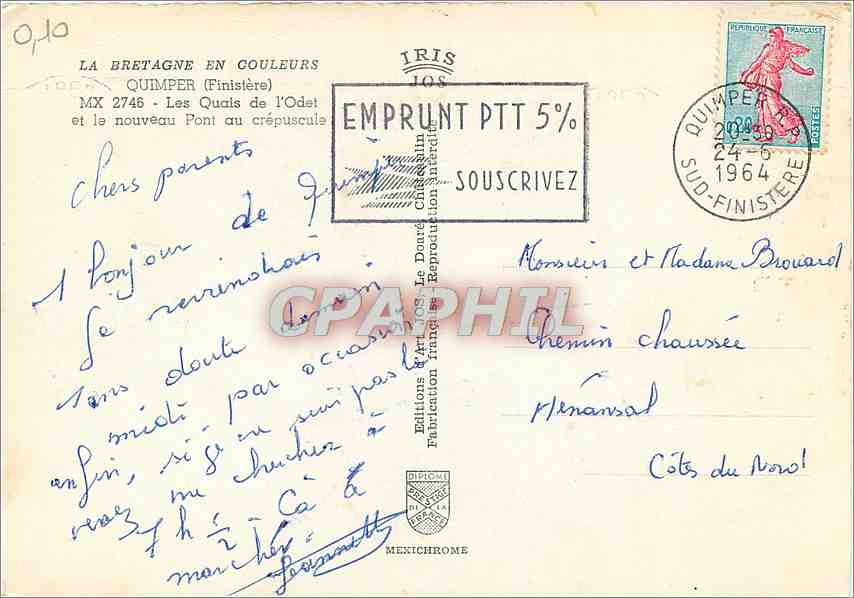 0,10
LA BRETAGNE EN COULEURS
QUIMPER (Finistère)
MX 2746 - Les Quais de l'Odet
et le nouveau Pont au crépuscule
IRIS
JOS
EMPRUNT PTT 5%
SOUSCRIVEZ
REPUBLIQUE FRANÇAISE
0,20
POSTES
QUIMPER R.P.
20H30
24-6
1964
SUD-FINISTERE
Chers parents
1 bonjour de Quimper
Je reviendrais
sans doute demain
midi par occasion
enfin, si je ne suis pas là
venez me chercher à
7 h ½ - Ca a
marché.
Jeannette
Editions d'Art JOS. Le Doaré, Châteaulin
Fabrication française - Reproduction interdite
CPAPHIL
Monsieur et Madame Brouard
Chemin chaussée
Hénansal
Côtes du Nord
DIPLOME
PRESTIGE
DE LA
FRANCE
MEXICHROME